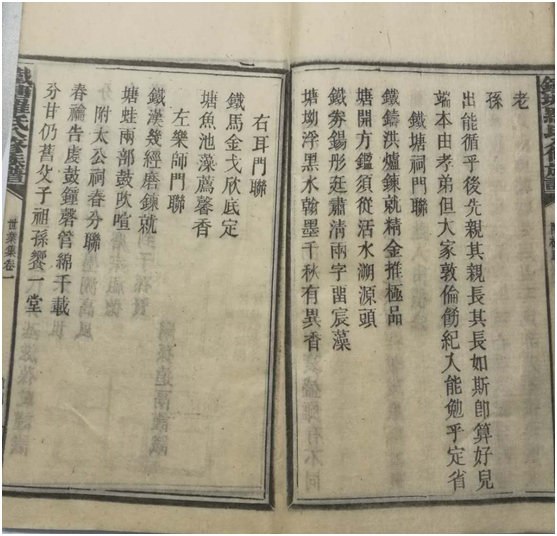 老
孫
出能循乎後先親其親長其長如斯卽算好兒
端本由孝弟但大家敦倫飭紀入能勉乎定省
鐵塘祠門聯
鐵鑄洪爐鍊就精金推極品
塘開方鑑須從活水溯源頭
鐵券錫彤廷肅清兩字畱宸藻
塘坳浮黑水翰墨千秋有異香
右耳門聯
鐵馬金戈欣底定
塘魚池藻薦馨香
左樂師門聯
鐵漢幾經磨鍊就
塘蛙兩部鼓吹喧
附太公祠春分聯
春禴告虔鼓鐘磬管綿千載
分甘仍舊父子祖孫饗一堂
世業集卷一